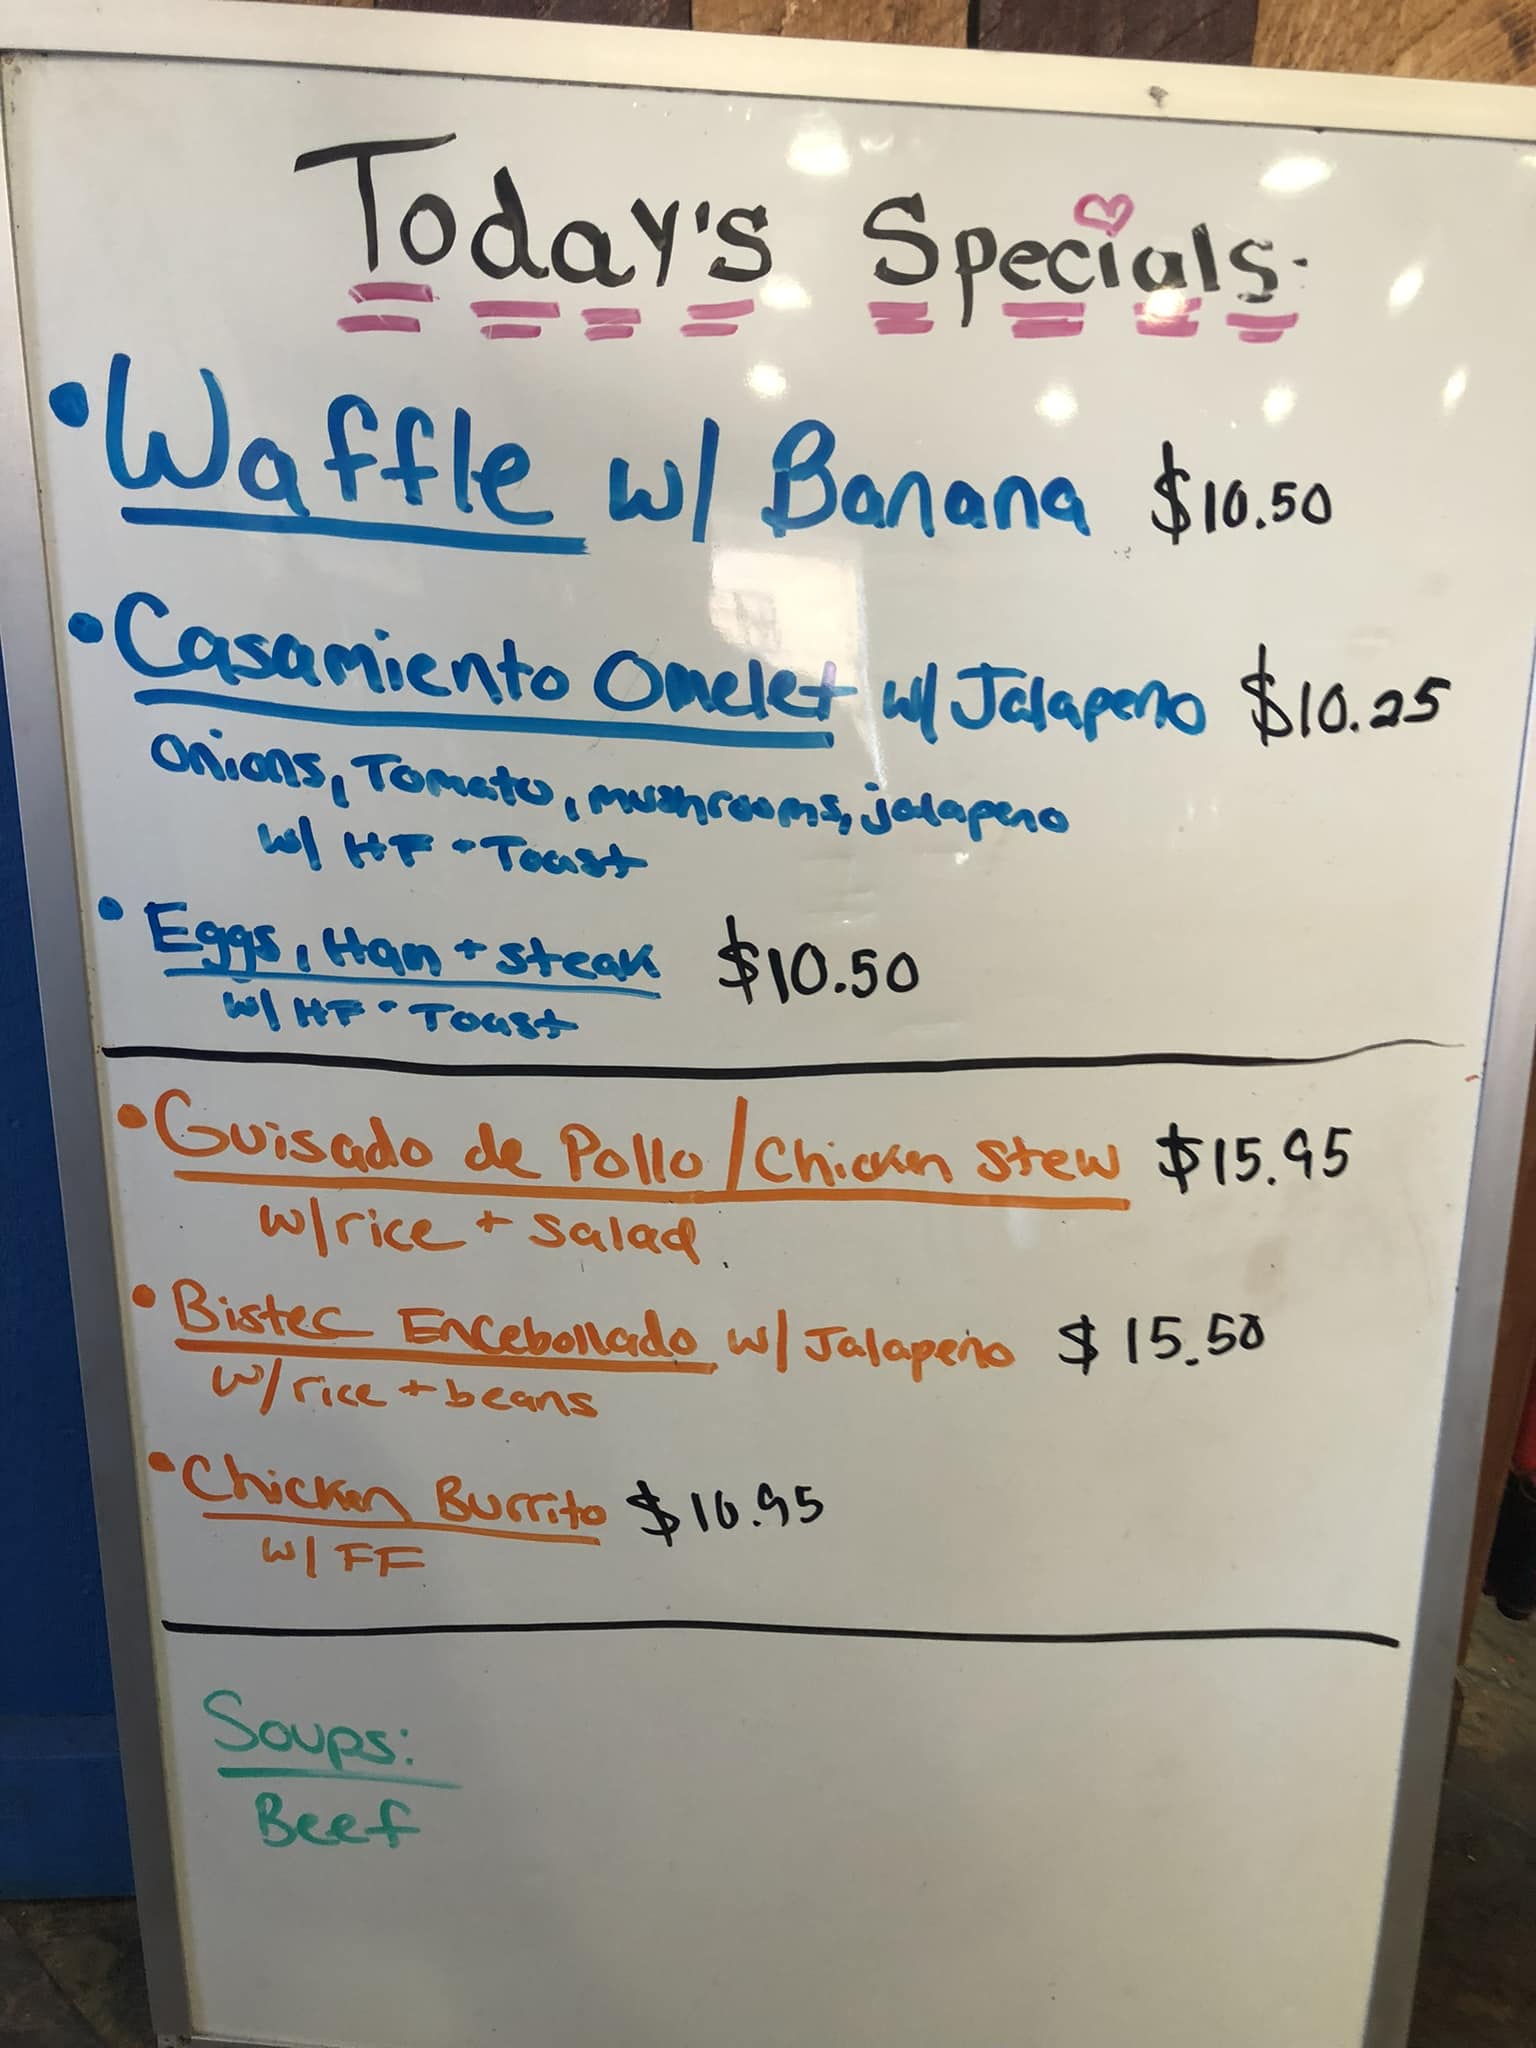 Today's Specials.
• Waffle w/ Banana $10.50
• Casamiento Omelet w/ Jalapeño $10.25
Onions, Tomato, mushrooms, jalapeno
w/ HF • Toast
• Eggs, Ham + steak $10.50
w/ HF • Toast
• Guisado de Pollo / Chicken Stew $15.95
w/ rice + salad
• Bistec Encebollado w/ Jalapeño $15.50
w/ rice + beans
• Chicken Burrito $10.95
w/ FF
Soups:
Beef